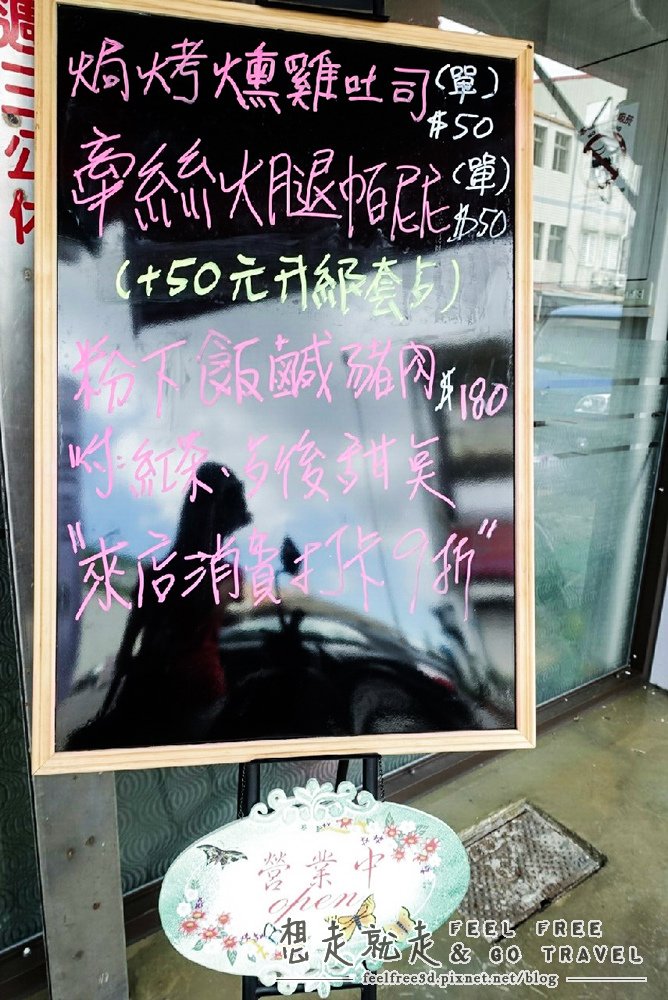 週三公休
焗烤燻雞吐司(單)
$50
牽絲火腿帕尼(單)
$50
(+50元升級套占)
粉下飯鹹豬肉
$180
附:紅茶、占後甜臭
"來店消費打卡9折"
營業中
open
想走就走 FEEL FREE
& GO TRAVEL
feelfreesd.pixnet.net/blog